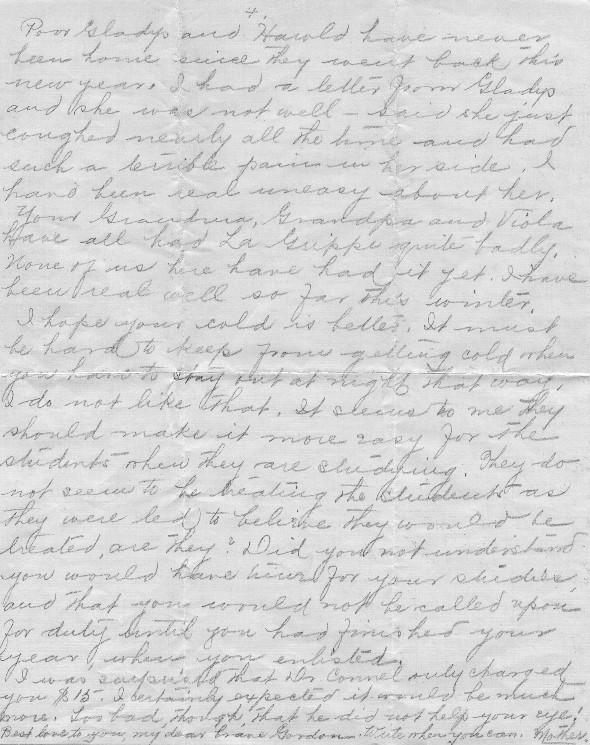 4.
Poor Gladys and Harold have never
been home since they went back this
new year. I had a letter from Gladys
and she was not well - said she just
coughed nearly all the time and had
such a terrible pain in her side. I
have been real uneasy about her.
Your Grandma, Grandpa and Viola
have all had La Grippe quite badly.
None of us here have had it yet. I have
been real well so far this winter.
I hope your cold is better. It must
be hard to keep from getting cold when
you have to stay out at night that way.
I do not like that. It seems to me they
should make it more easy for the
students when they are studying. They do
not seem to be treating the students as
they were led to believe they would be
treated, are they? Did you not understand
you would have hours for your studies,
and that you would not be called upon
for duty until you had finished your
year, when you enlisted.
I was surprised that Dr. Connel only charged
you $15. I certainly expected it would be much
more. Too bad, though, that he did not help your eye!
Best love to you, my dear brave Gordon. Write when you can. Mother.